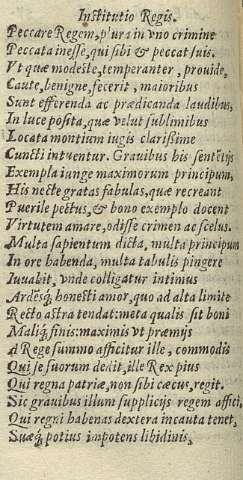 Institutio Regis.
Peccare Regem, plura in vno crimine
Peccata inesse, qui sibi & peccat suis.
Vt quæ modeste, temperanter, prouide,
Caute, benigne, fecerit, maioribus
Sunt efferenda ac prædicanda laudibus,
In luce posita, quæ velut sublimibus
Locata montium iugis clarissime
Cuncti intuentur. Grauibus his sententijs
Exempla iunge maximorum principum,
His necte gratas fabulas, quæ recreant
Puerile pectus, & bono exemplo docent
Virtutem amare, odisse crimen ac scelus.
Multa sapientum dicta, multa principum
In ore habenda, multa tabulis pingere
Iuuabit, vnde colligatur intimus
Ardesq; honesti amor, quo ad alta limite
Recto astra tendat: meta qualis sit boni
Maliq; finis: maximis vt præmijs
A Rege summo afficitur ille, commodis
Qui se suorum dedit, ille Rex pius
Qui regna patriæ, non sibi cæcus, regit.
Sic grauibus illum supplicijs regem affici,
Qui regni habenas dextera incauta tenet,
Suæq; potius impotens libidinis,